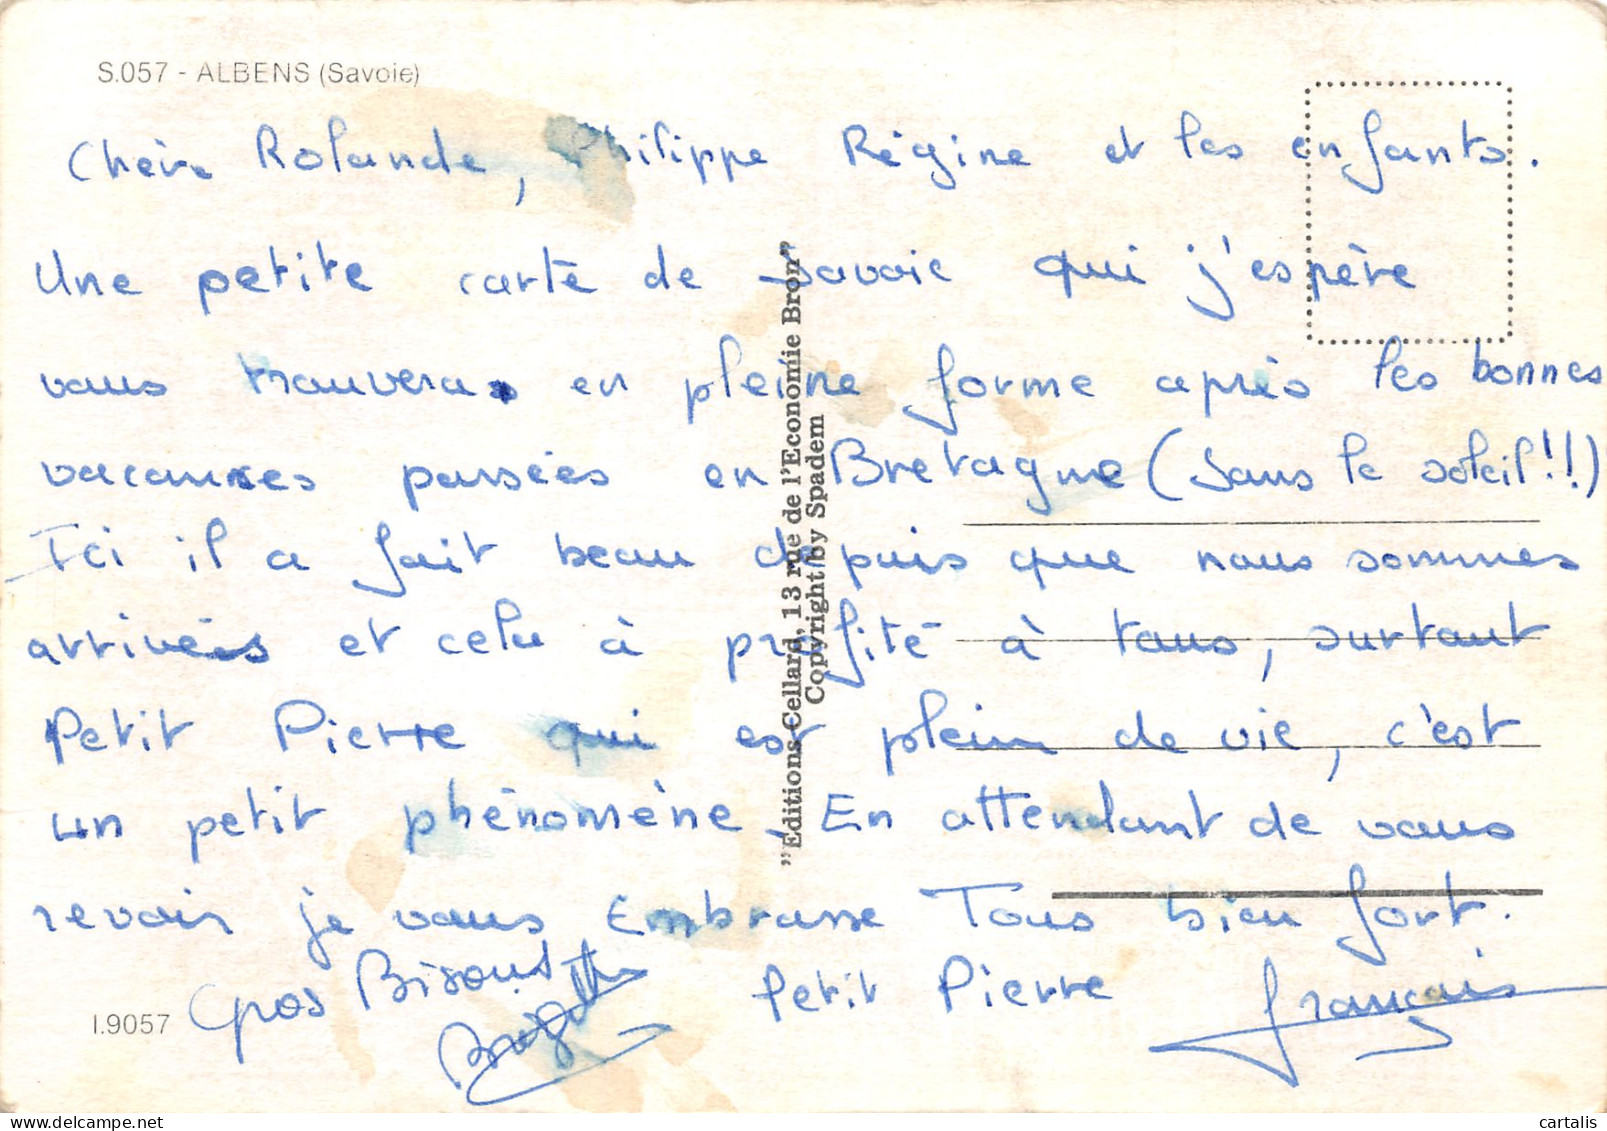 S.057 - ALBENS (Savoie)
Chère Rolande, Philippe Régine et les enfants.
Une petite carte de Savoie qui j'espère
vous trouvera en pleine forme après les bonnes
vacances passées en Bretagne (sans le soleil!!)
Ici il a fait beau depuis que nous sommes
arrivés et celu à profité à tous, surtout
Petit Pierre qui est plein de vie, c'est
un petit phénomène. En attendant de vous
revoir je vous Embrasse Tous bien fort.
Gros Bisous Petit Pierre François
Brigitte
I.9057
"Editions Cellard, 13 rue de l'Economie Bron"
Copyright by Spadem
cartalis